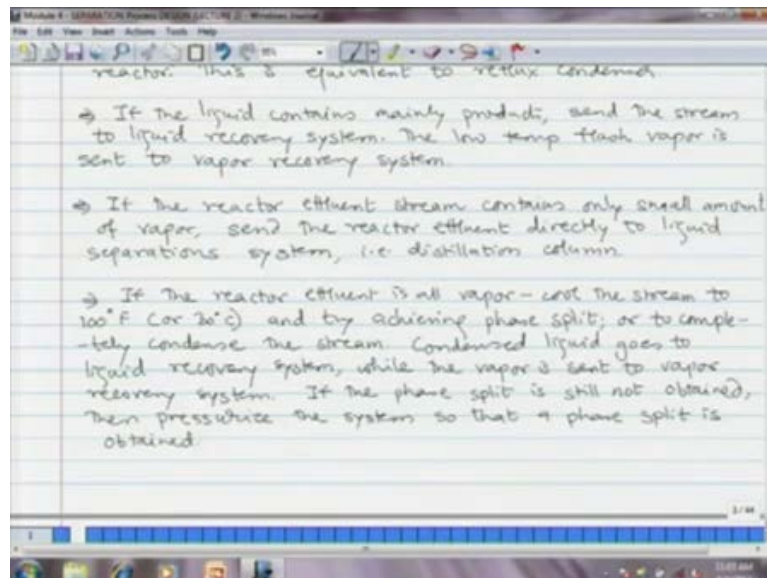 Module 4 - SEPARATION Process DESIGN (LECTURE 2) - Windows Journal
File Edit View Insert Actions Tools Help
reactor. This is equivalent to reflux condenser
⇒ If the liquid contains mainly products, send the stream
to liquid recovery system. The low temp flash vapor is
sent to vapor recovery system.
⇒ If the reactor effluent stream contains only small amount
of vapor, send the reactor effluent directly to liquid
separations system, i.e distillation column
⇒ If the reactor effluent is all vapor - cool the stream to
100°F (or 30°C) and try achieving phase split; or to comple-
-tely condense the stream. Condensed liquid goes to
liquid recovery system, while the vapor is sent to vapor
recovery system. If the phase split is still not obtained,
then pressurize the system so that a phase split is
obtained.
3/44
1
11:05 AM